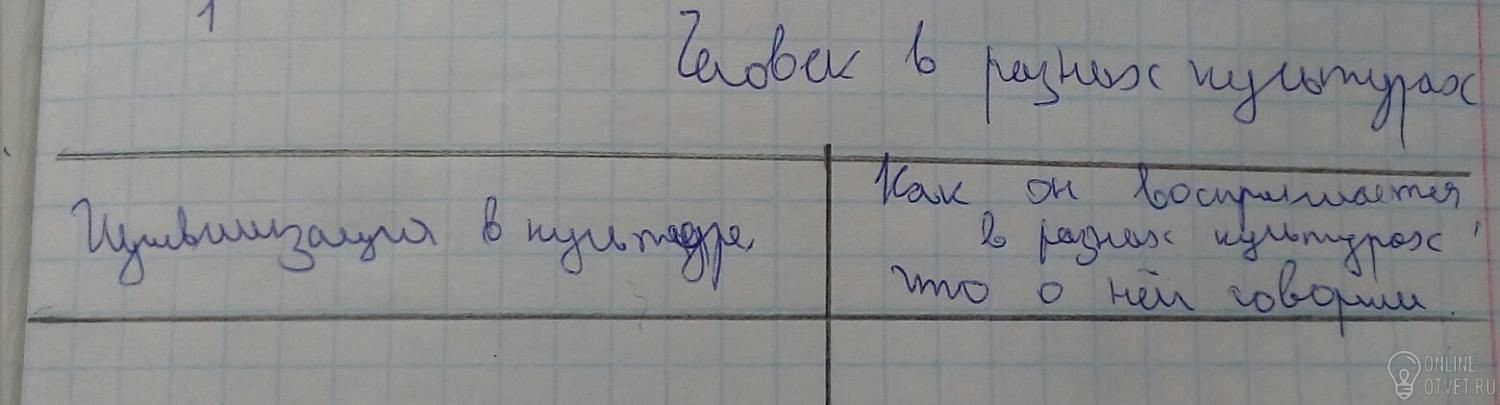 1
Человек в разных культурах
Цивилизация в культуре
Как он воспринимается
в разных культурах,
что о нём говорили.
ONLINE
OTVET.RU